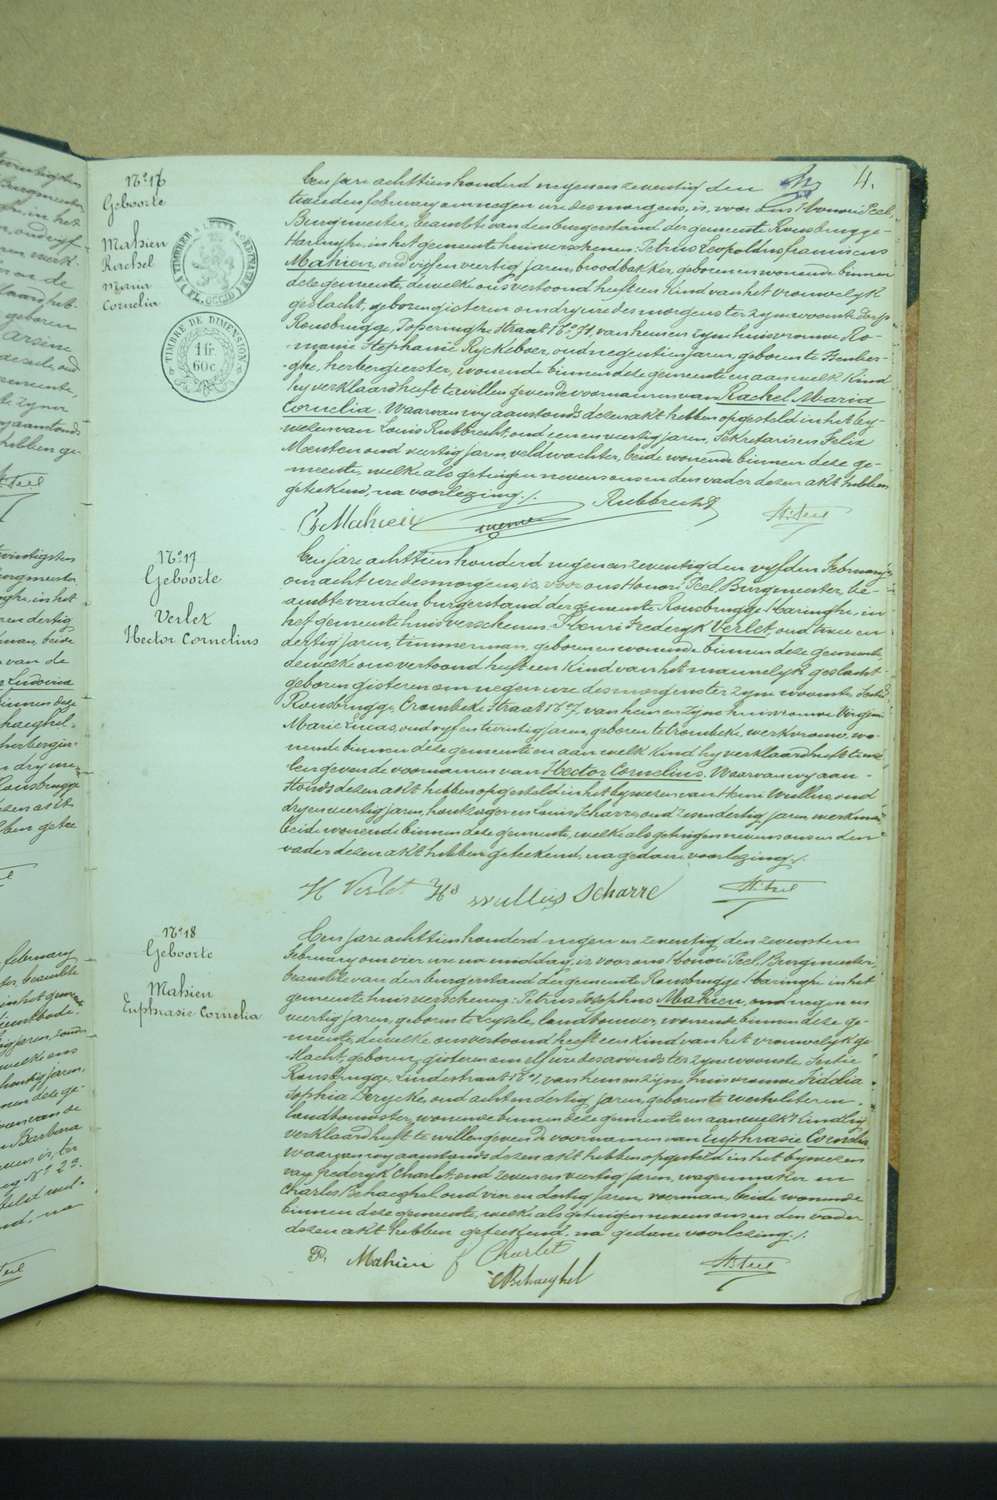 4.
No 16
Geboorte
Mahieu
Rachel
Maria
Cornelia
TIMBRE DE DIMENSION
1 fr.
60 c
Een jare achttien honderd negen en zeventig den
tweeden february om negen ure des morgens, is, voor ons Honoré Peel,
Burgmeester, beambte van den burgerstand der gemeente Rousbrugge-
Haringhe, in het gemeentehuis verschenen: Petrus Leopoldus franciscus
Mahieu, oud vijf en veertig jaren, broodbakker, geboren en wonende binnen
deze gemeente, dewelke ons vertoond heeft een kind van het vrouwelijk
geslacht, geboren gisteren om dry ure des morgens ter zijn woonste Dorp
Rousbrugge, Poperinghe Straat No 71 van hem en zijn huisvrouwe Ro-
manie Stephanie Ryckeboer, oud negentien jaren, geboren te Isenber-
ghe, herbergierster, wonende binnen deze gemeente en aan welk Kind
hy verklaard heeft te willen geven de voornamen van Rachel Maria
Cornelia. Waarvan wy aanstonds dezen akt hebben opgesteld in het by-
wezen van Louis Rubbrecht, oud een en veertig jaren, Sekretaris en Felix
oud veertig jaren, veldwachter, beide wonende binnen deze ge-
meente, welke als getuigen nevens ons en den vader dezen akt hebben
geteekend, na voorlezing ./.
Mahieu Rubbrecht H. Peel
No 17
Geboorte
Verlet
Hector Cornelius
Een jare achttien honderd negen en zeventig den vyfden February
om acht ure des morgens, is, voor ons Honoré Peel, Burgmeester, be-
ambte van den burgerstand der gemeente Rousbrugge-Haringhe, in
het gemeentehuis verschenen: Henri Frederyk Verlet, oud twee en
dertig jaren, timmerman, geboren en wonende binnen deze gemeente,
dewelke ons vertoond heeft een Kind van het mannelyk geslacht
geboren gisteren om negen ure des morgens ter zyn woonste
Rousbrugge, Crombeke Straat No 7, van hem en zyne huisvrouwe
Marie Lucas, oud vyf en twintig jaren, geboren te Crombeke, werkvrouw, wo-
nende binnen deze gemeente en aan welk Kind hy verklaard heeft te wil-
len geven de voornamen van Hector Cornelius. Waarvan wy aan-
stonds dezen akt hebben opgesteld in het bywezen van Henri Wullus, oud
dry en veertig jaren, houtzager en Louis Scharre, oud zes en dertig jaren, werkman
beide wonende binnen deze gemeente, welke als getuigen nevens ons en den
vader dezen akt hebben geteekend, na gedane voorlezing ./.
H Verlet Hs Wullus Scharre H. Peel
No 18
Geboorte
Mahieu
Euphrasie Cornelia
Een jare achttien honderd negen en zeventig den zevensten
February om vier ure na middag, is voor ons Honoré Peel, Burgmeester,
beambte van den burgerstand der gemeente Rousbrugge-Haringhe in het
gemeentehuis verschenen: Petrus Josephus Mahieu, oud negen en
veertig jaren, geboren te Leysele, landbouwer, wonende binnen deze ge-
meente, dewelke ons vertoond heeft een kind van het vrouwelyk ge-
slacht, geboren gisteren om elf ure des avonds ter zyn woonste Sectie
Rousbrugge, Lindestraat No 1, van hem en zijne huisvrouwe Fiddia
Sophia Derycke, oud acht en dertig jaren, geboren te Westvleteren
landbouwster, wonende binnen deze gemeente en aan welk Kind hy
verklaard heeft te willen geven de voornamen van Euphrasie Cornelia
waarvan wy aanstonds dezen akt hebben opgesteld in het bywezen
van frederyk Charlet, oud zeven en veertig jaren, wagenmaker en
Charles Behaeghel oud vier en dertig jaren, voerman, beide wonende
binnen deze gemeente, welke als getuigen nevens ons en den vader
dezen akt hebben geteekend, na gedane voorlezing ./.
P. Mahieu f Charlet H. Peel
C Behaeghel